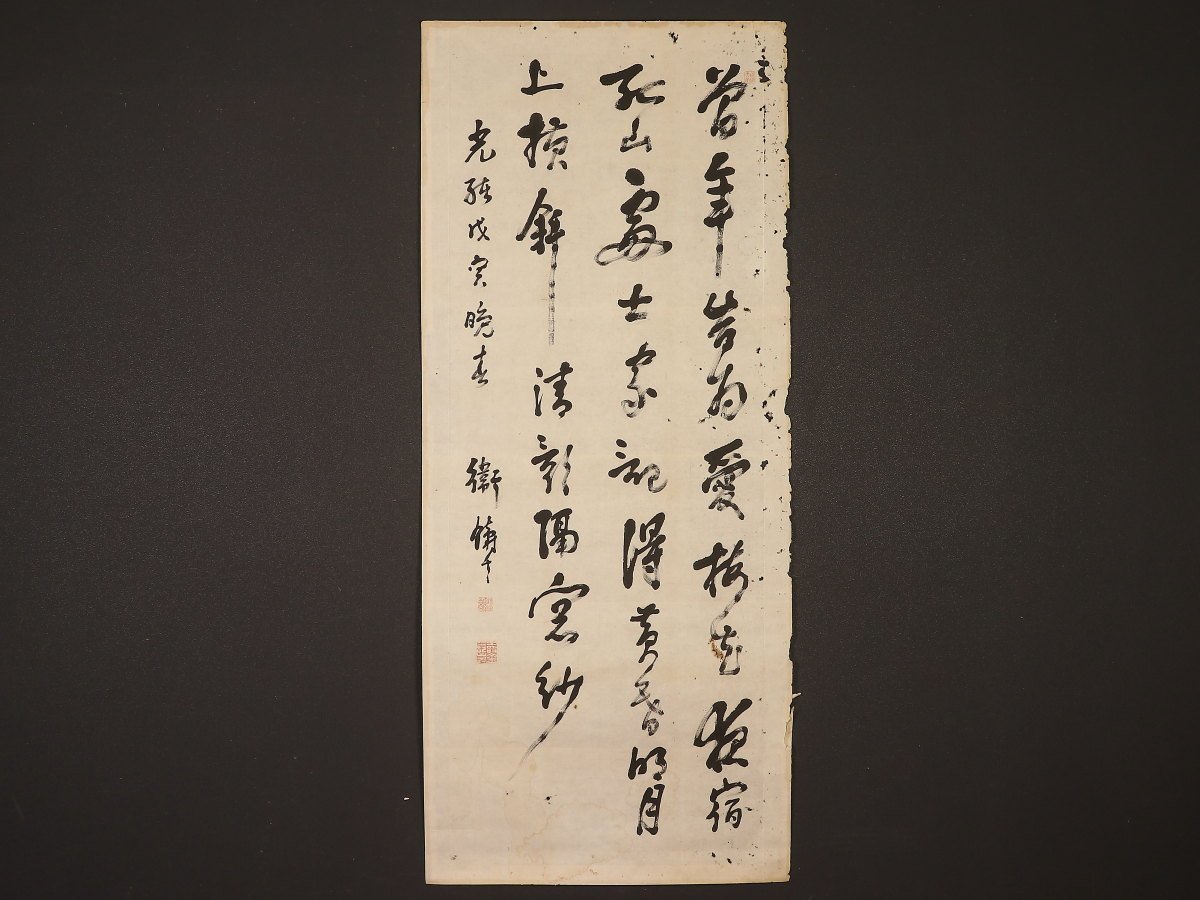 當年為愛梅花夜宿
孤山處士家記得黃昏明月
上橫斜清影隔窓紗
光緒戊寅晚春 衛鑄生